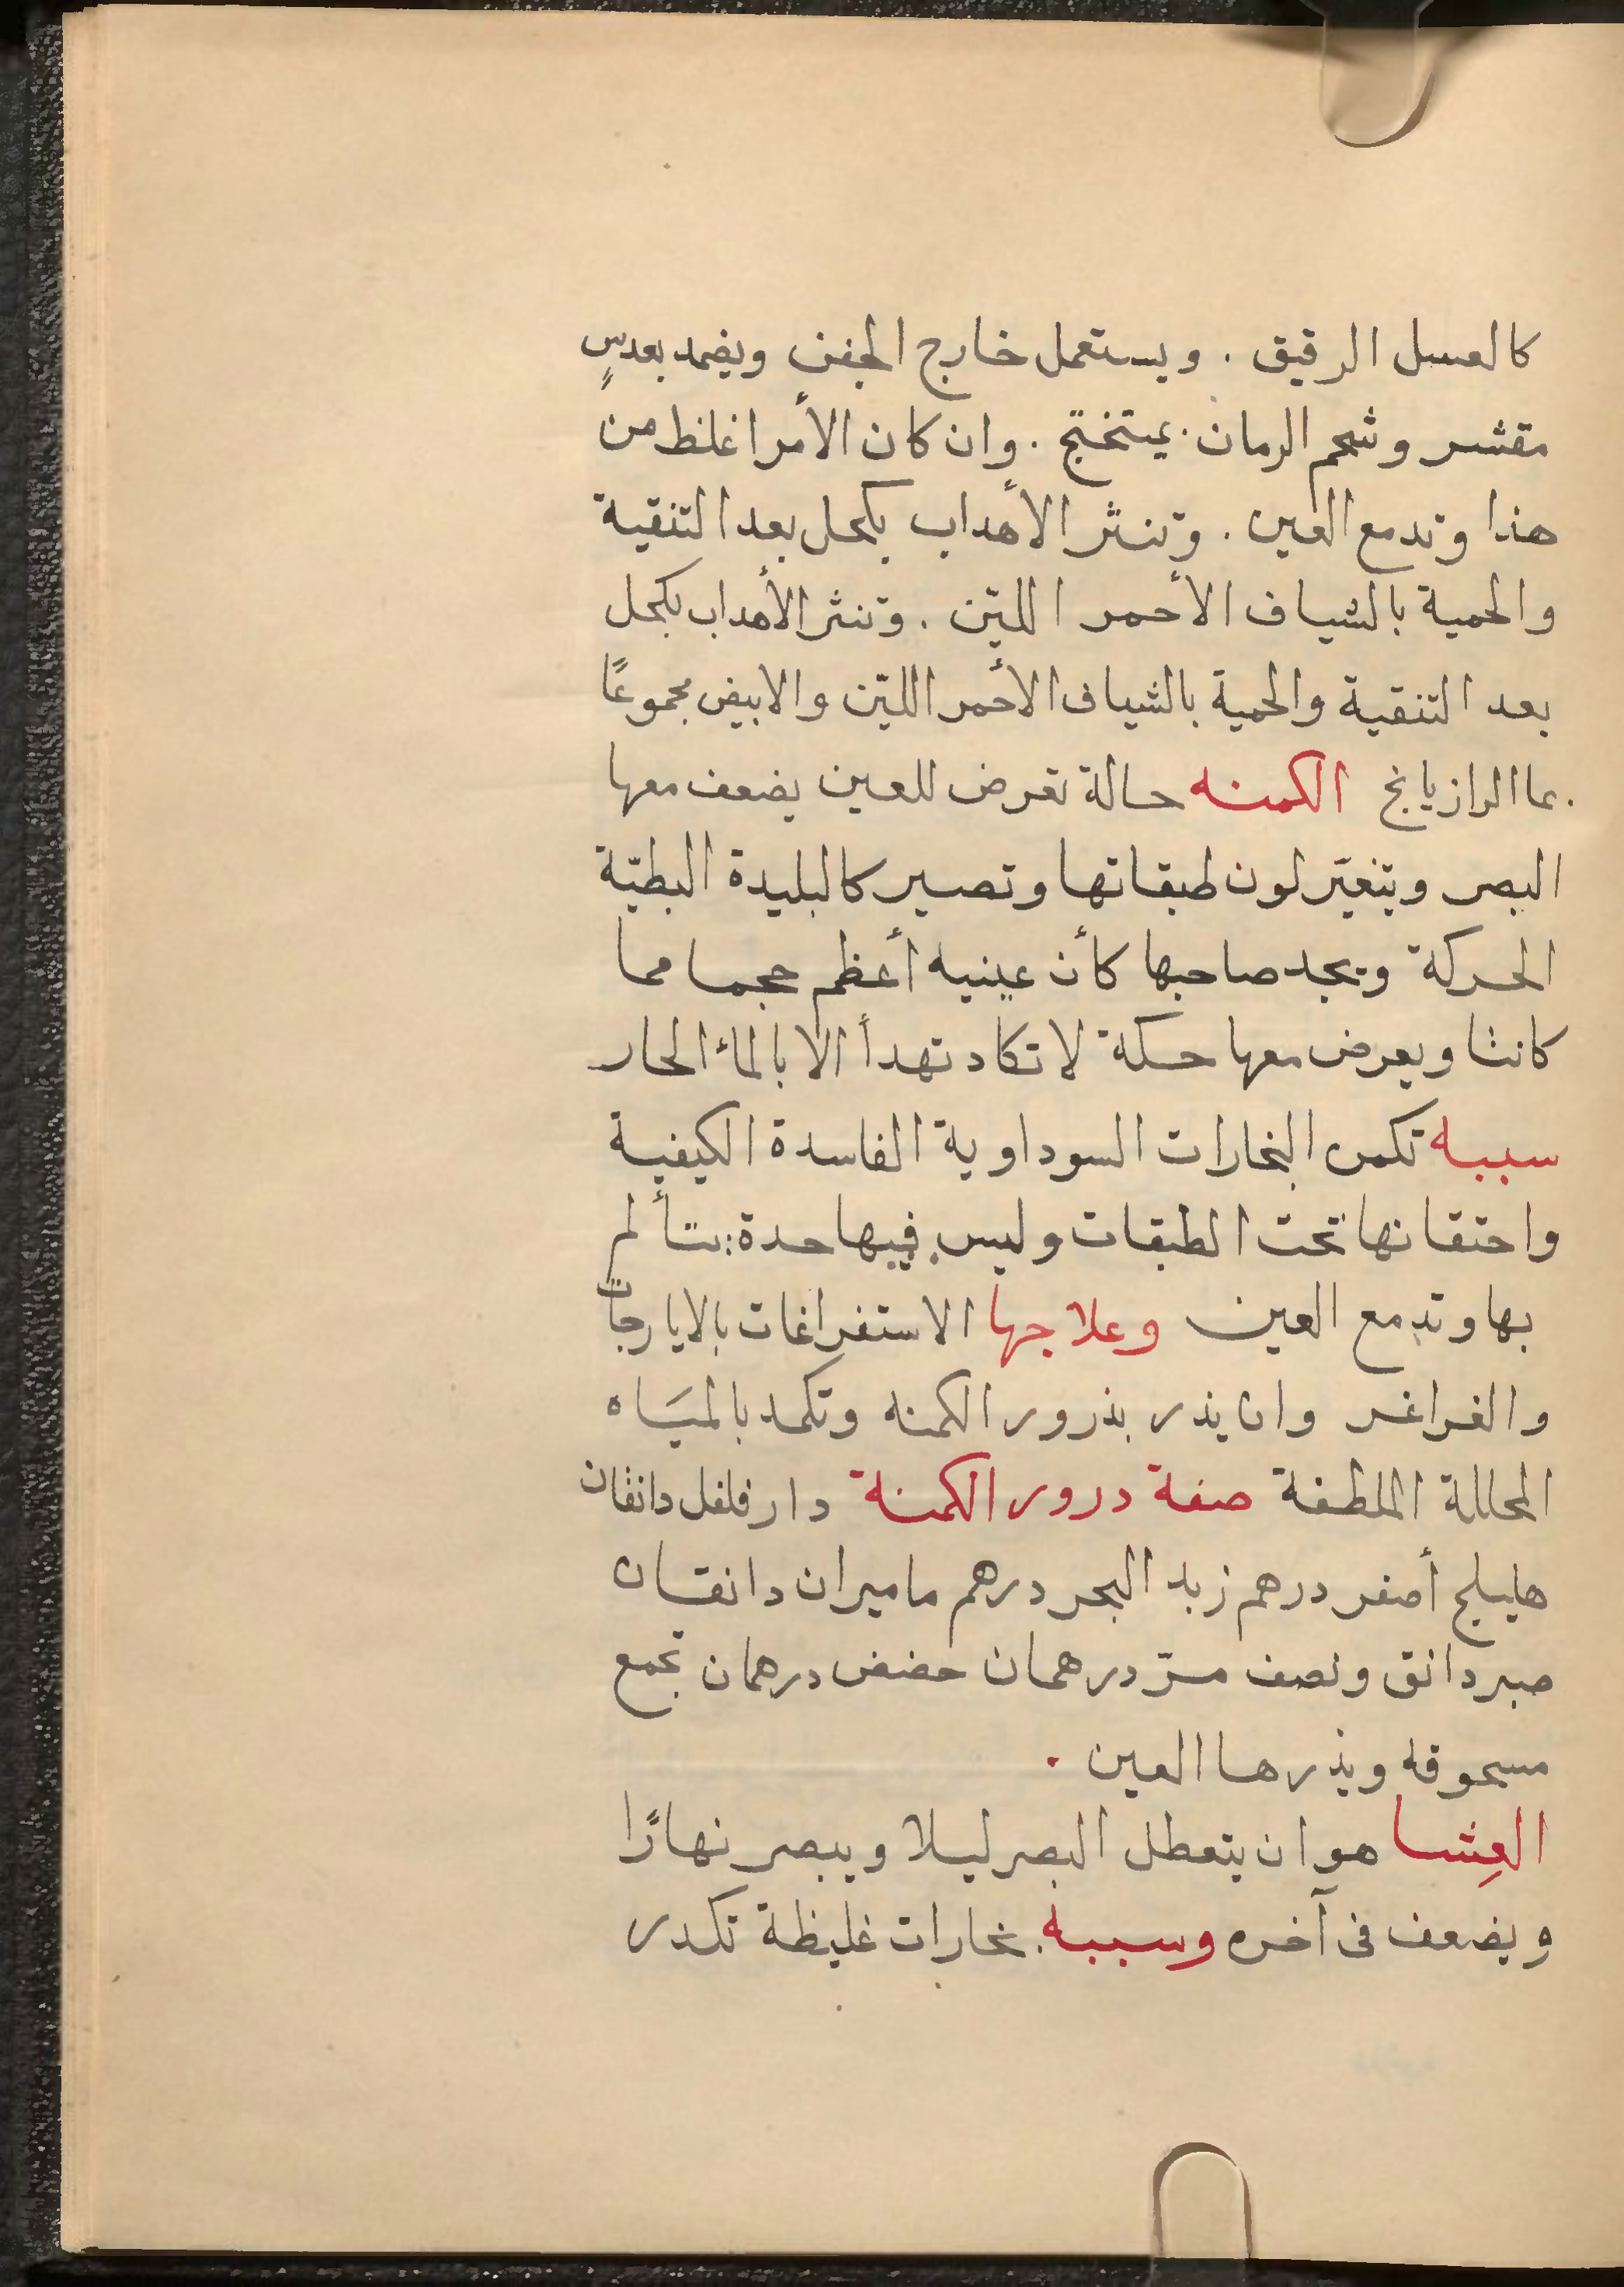 كالعسل الرقيق . ويستعمل خارج الجفن ويضمد بعدسٍ
مقشر وشحم الرمان . بميتختج . وان كان الأمر اغلظ من
هذا وتدمع العين . وتنثر الأهداب يكحل بعد التنقية
والحمية بالشياف الأحمر الليّن . وتنثر الأهداب يكحل
بعد التنقية والحمية بالشياف الأحمر الليّن والابيض مجموعًا
بما الرازيانج الكمنه حالة تعرض للعين يضعف معها
البصر ويتغيّر لون طبقاتها وتصير كالبليدة البطيّة
الحركة ويجد صاحبها كأن عينيه أعظم حجما مما
كانتا ويعرض معها حكة لا تكاد تهدأ الا بالماء الحار
سببه تكمن البخارات السوداوية الفاسدة الكيفية
واحتقانها تحت الطبقات وليس فيها حدة يتألم
بها وتدمع العين وعلاجها الاستفراغات بالايارجات
والغراغر وان يذر بذرور الكمنه وتكمد بالميَاه
المحللة الملطفة صفة درور الكمنة دار فلفل دانقان
هليلج أصفر درهم زبد البحر درهم ماميران دانقان
صبر دانق ونصف مرّ درهمان حضض درهمان تجمع
مسحوقه ويذرها العين .
العِشا هو ان يتعطل البصر ليلا ويبصر نهارًا
ويضعف فى آخره وسببه بخارات غليظة تكدر